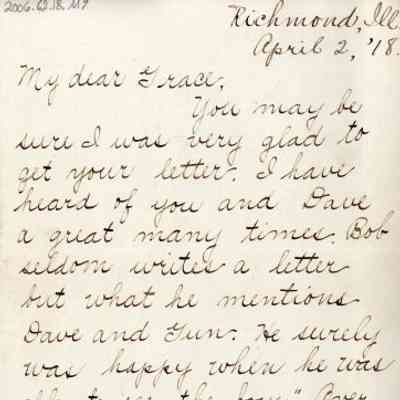 2006.63.18.119
Richmond, Ill.
April 2, '18.
My dear Grace,
You may be
sure I was very glad to
get your letter. I have
heard of you and Dave
a great many times. Bob
seldom writes a letter
but what he mentions
Dave and Gun. He surely
was happy when he was
able to see the boys" Over